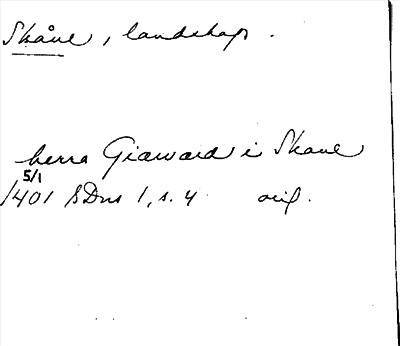 Skåne, landskap.
herra Giaward i Skane
5/1
1401 SDns 1, s. 4 orig.